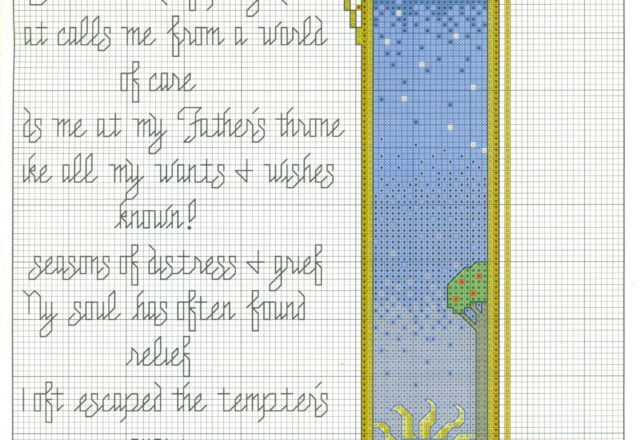 at calls me from a world
of care
ds me at my Father's throne
ke all my wants & wishes
known!
seasons of distress & grief
My soul has often found
relief
I oft escaped the tempter's